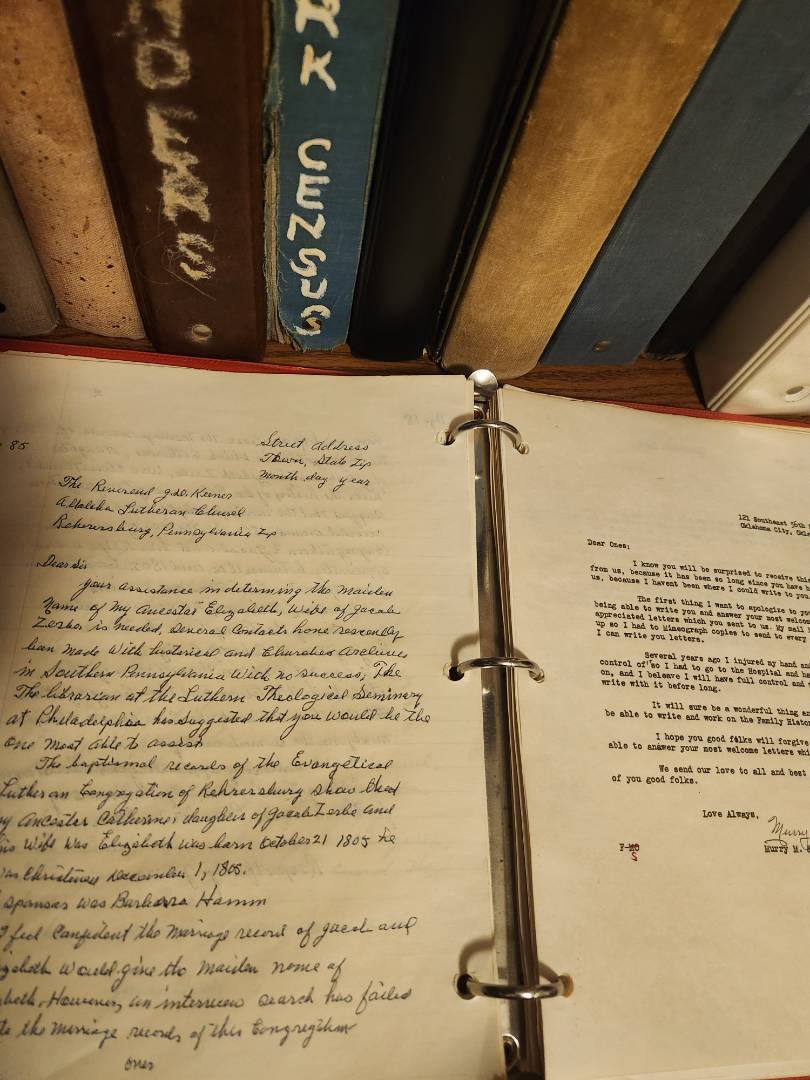 RK CENSUS
85
Street Address
Town, State Zip
Month day year
The Reverend J.D. Keener
Altalaha Lutheran Church
Rehrersburg, Pennsylvania Zip
Dear Sir
your assistance in determing the maiden
Name of My Ancestar Elizabeth, Wife of Jacob
Zerbe is needed, Several Contacts have rescently
been Made With historical and Churches Archives
in Southern Pennsylvania With no success, The
The librarian at the Luthern Theological Seminery
at Philadelphia has suggested that you would be the
one most able to assist
The baptismal records of the Evangetical
Lutheran Congregation of Rehrersburg show that
my Ancester Catherine; daughter of Jacob Zerbe and
his Wife was Elizabeth was born October 21 1805 he
was Christined december 1, 1805.
sponsar was Barbara Hamm
I feel Canfident the Marriage record of Jacob and
Would give the Maiden name of
However, an interview search has failed
the Marriage records of this Congregation
ones
121 Southeast 56th
Oklahoma City,
Dear Ones;
I know you will be surprised to receive this
from us, because it has been so long since you have
us, because I havent been where I could write to you
The first thing I want to apologize to
being able to write you and answer your most
appreciated letters which you sent to us. My mail
up so I had to Mineograph copies to send to every
I can write you letters.
Several years ago I injured my hand and
control of so I had to go to the Hospital and
on, and I beleave I will have full control and
write with it before long.
It will sure be a wonderful thing
be able to write and work on the Family
I hope you good folks will forgive
able to answer your most welcome letters
We send our love to all and best
of you good folks.
Love Always,
Murry
F-MO
S
Murry M.